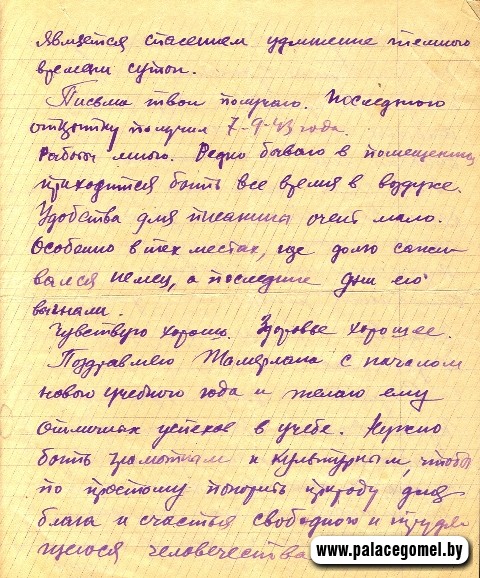 является спасением удлинение темного
времени суток.
Письма твои получаю. Последнюю
открытку получил 7-9-43 года.
Работы много. Редко бываю в помещении,
приходится быть все время в воздухе.
Удобства для писанины очень мало.
Особенно в тех местах, где долго
вался немец, а последние дни его
выгнали.
Чувствую хорошо. Здоровье хорошее.
Поздравляю Тамерлана с началом
нового учебного года и желаю ему
отличных успехов в учебе. Нужно
быть грамотным и культурным, чтобы
по простому покорить природу для
блага и счастья свободного и трудя-
щегося человечества
www.palacegomel.by